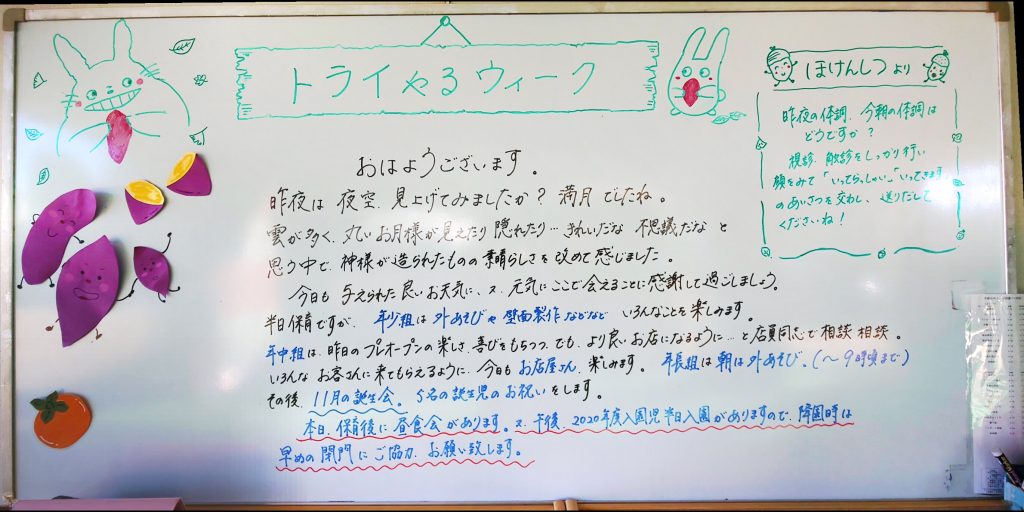 トライやるウィーク
おはようございます。
昨夜は 夜空、見上げてみましたか？ 満月 でしたね。
雲が多く、丸いお月様が見えたり隠れたり…きれいだな 不思議だな と
思う中で、神様が造られたものの素晴らしさを改めて感じました。
今日も 与えられた良いお天気に、又、元気にここで会えることに感謝して過ごしましょう。
半日保育ですが、年少組は外あそびや壁面製作などなど いろんなことを楽しみます。
年中組は、昨日のプレオープンの楽しさ、喜びをもちつつ、でも、より良いお店になるように…と店員同志で相談 相談。
いろんな お客さんに来てもらえるように、今日もお店屋さん、楽しみます。 年長組は朝は外あそび。(〜9時頃まで)
その後、11月の誕生会。5名の誕生児のお祝いをします。
本日、保育後に昼食会があります。又、午後、2020年度入園児半日入園がありますので、降園時は
早めの閉門にご協力、お願い致します。
ほけんしつより
昨夜の体調、今朝の体調は
どうですか？
視診、触診をしっかり行い
顔をみて「いってらっしゃい」「いってきます」
のあいさつを交わし、送りだして
くださいね！